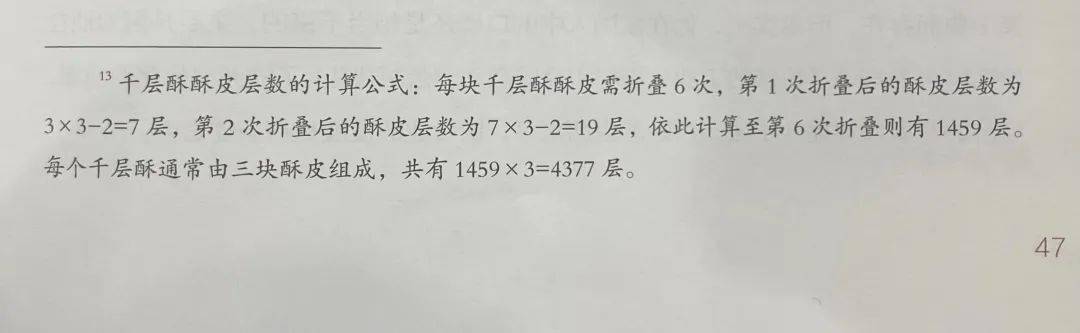 13 千层酥酥皮层数的计算公式：每块千层酥酥皮需折叠 6 次，第 1 次折叠后的酥皮层数为
3×3−2=7 层，第 2 次折叠后的酥皮层数为 7×3−2=19 层，依此计算至第 6 次折叠则有 1459 层。
每个千层酥通常由三块酥皮组成，共有 1459×3=4377 层。
47